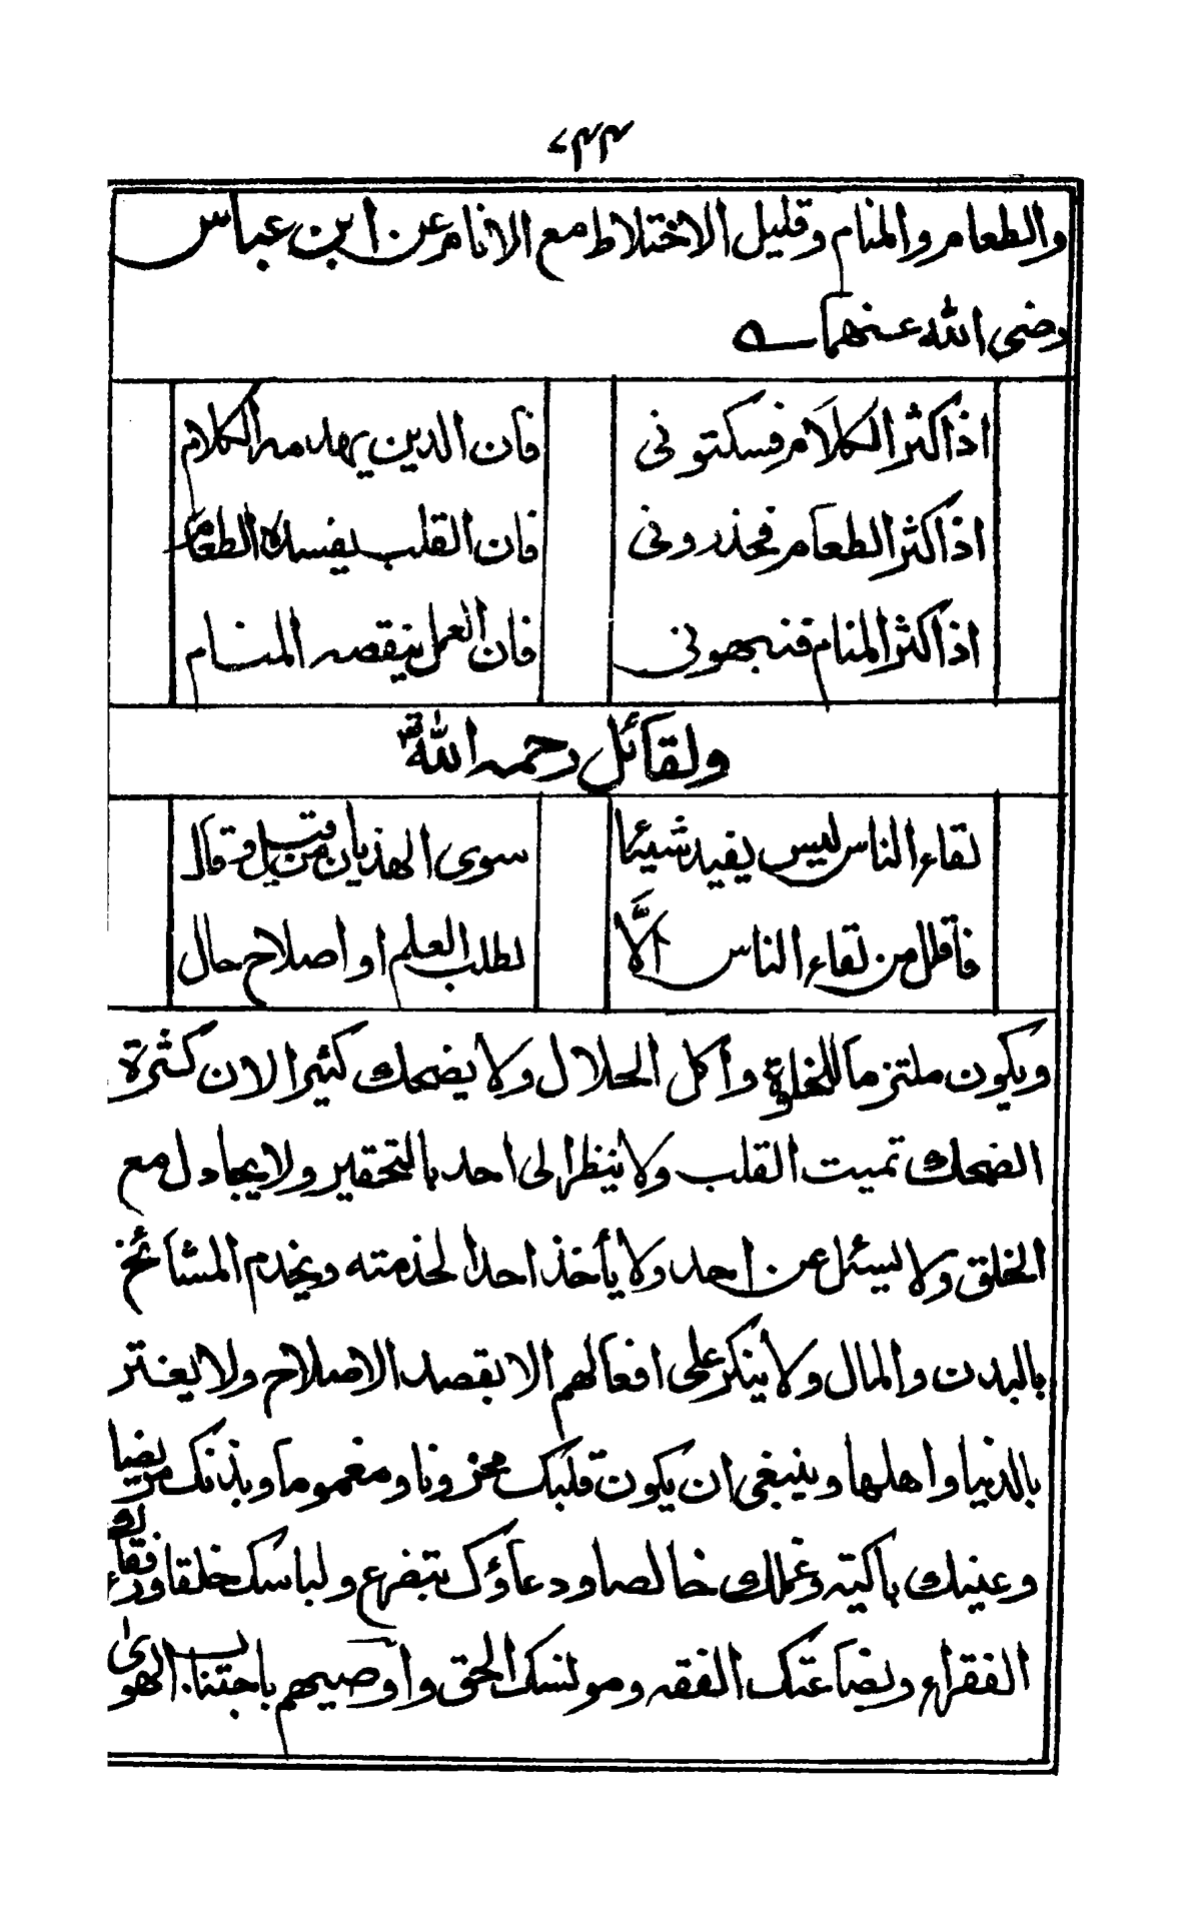 ۷۳۳
والطعام والمنام وقليل الاختلاط مع الانام عن ابن عباس
رضى الله عنهما
اذا كثر الكلام فسكتونى فان الدين يهدمه الكلام
اذا كثر الطعام فحذرونى فان القلب يفسده الطعام
اذا كثر المنام فنبهونى فان العمل ينقصه المنام
ولقائل رحمه الله
لقاء الناس ليس يفيد شيئا سوى الهذيان من قيل وقال
فاقلل من لقاء الناس الّا لطلب العلم او اصلاح حال
ويكون ملتزما للخلوة وأكل الحلال ولا يضحك كثيرا لان كثرة
الضحك تميت القلب ولا ينظر الى احد بالتحقير ولا يجادل مع
الخلق ولا يسئل عن احد ولا يأخذ احدا لخدمته ويخدم المشائخ
بالبدن والمال ولا ينكر على افعالهم الا بقصد الاصلاح ولا يغتر
بالدنيا واهلها وينبغى ان يكون قلبك محزونا ومغموما وبدنك مريضا
وعينك باكية وعملك خالصا ودعاؤك بتضرع ولباسك خلقا ورفقاؤك
الفقراء وبضاعتك الفقه ومونسك الحق واوصيهم باجتناب الهوىٰ